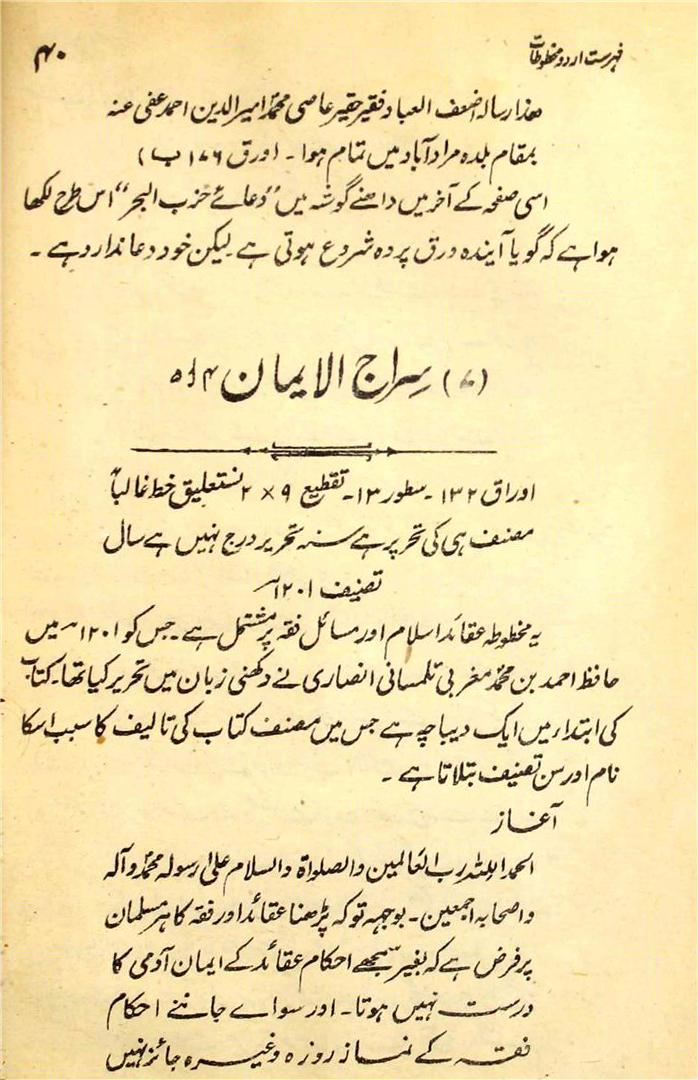 فہرست اردو مخطوطات
۴۰
ھذا رسالہ اضعف العباد فقیر حقیر عاصی محمد امیر الدین احمد عفی عنہ
بمقام بلدہ مراد آباد میں تمام ہوا ۔ (ورق ۱۷۶ ب)
اسی صفحہ کے آخر میں داہنے گوشہ میں ”دعائے حزب البحر“ اس طرح لکھا
ہوا ہے کہ گویا آیندہ ورق پر دہ شروع ہوتی ہے لیکن خود دعا ندارد ہے ۔
(۷) سراج الایمان
اوراق ۱۳۲ ۔ سطور ۱۳ ۔ تقطیع ۹ × ۲ نستعلیق خط غالباً
مصنف ہی کی تحریر ہے سنہ تحریر درج نہیں ہے سال
تصنیف ۱۲۰۱ھ
یہ مخطوطہ عقائد اسلام اور مسائل فقہ پر مشتمل ہے ۔ جس کو ۱۲۰۱ھ میں
حافظ احمد بن محمد مغربی تلمسانی انصاری نے دکھنی زبان میں تحریر کیا تھا ۔ کتاب
کی ابتداء میں ایک دیباچہ ہے جس میں مصنف کتاب کی تالیف کا سبب اسکا
نام اور سن تصنیف بتلاتا ہے ۔
آغاز
الحمد اللہ رب العالمین والصلواة والسلام علیٰ رسولہ محمد وآلہ
واصحابہ اجمعین ۔ بوجہہ توکہ پڑھنا عقائد اور فقہ کا ہر مسلمان
پر فرض ہے کہ بغیر سمجھے احکام عقائد کے ایمان آدمی کا
درست نہیں ہوتا ۔ اور سواے جاننے احکام
فقہ کے نماز روزہ وغیرہ جائز نہیں